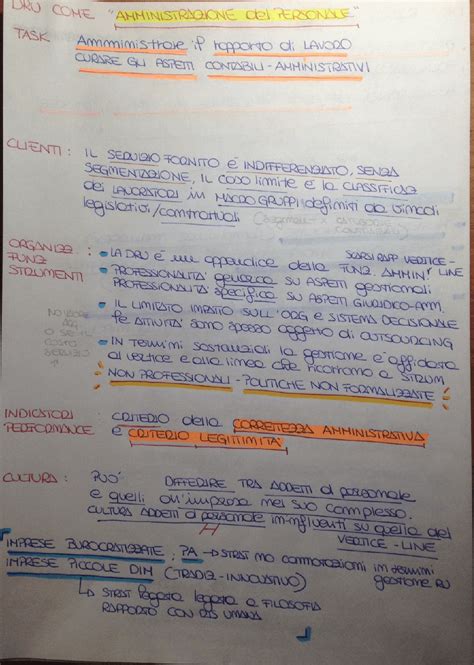 DRU COME "AMMINISTRAZIONE del PERSONALE"
TASK Amministrare il rapporto di LAVORO
CURARE GLI ASPETTI CONTABILI-AMMINISTRATIVI
CLIENTI : IL SERVIZIO FORNITO È INDIFFERENZIATO, SENZA
SEGMENTAZIONE, IL CASO limite è la CLASSIFICAZ
dei LAVORATORI in MACRO GRUPPI definiti da vincoli
legislativi/contrattuali
ORGANIZZ : • LA DRU è un' appendice della FUNZ. AMMIN
SCARSI RAPP VERTICE-LINE
FUNZ
STRUMENTI • PROFESSIONALITÀ generica su ASPETTI gestionali
PROFESSIONALITÀ specifica su ASPETTI GIURIDICO-AMM.
• IL LIMITATO IMPATTO SULL'ORG E SISTEMA DECISIONALE
le ATTIVITÀ sono spesso oggetto di OUTSOURCING
• IN TERMINI SOSTANZIALI la gestione è affidata
al vertice e alla linea che ricorrono a STRUM
NON PROFESSIONALI - POLITICHE NON FORMALIZZATE
INDICATORI : CRITERIO della CORRETTEZZA AMMINISTRATIVA
PERFORMANCE e CRITERIO LEGITTIMITÀ
CULTURA : PUÒ DIFFERIRE TRA ADDETTI al personale
e quelli di un'impresa nel suo complesso.
CULTURA ADDETTI al personale in-influenti su quella del
VERTICE-LINE
IMPRESE BUROCRATIZZATE : PA → STRAT no connotazioni in termini
gestione RU
IMPRESE PICCOLE DIM (TRADIZ-INNOVATIVO)
↳ STRAT legata a FILOSOFIA
RAPPORTO CON RIS UMANA